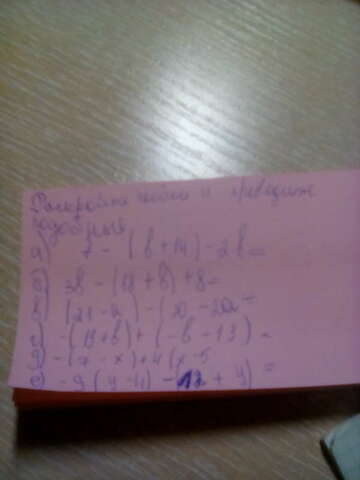 Раскройте скобки и приведите
подобные
а) 7 - (в + 14) - 2в =
б) 3в - (18 + в) + 8 =
в) (21 - а) - ( - 20а =
г) -(13 + в) + (-в - 13) =
д) -(7 - х) + 4(х - 5
е) -9(у - 11) - (12 + у) =